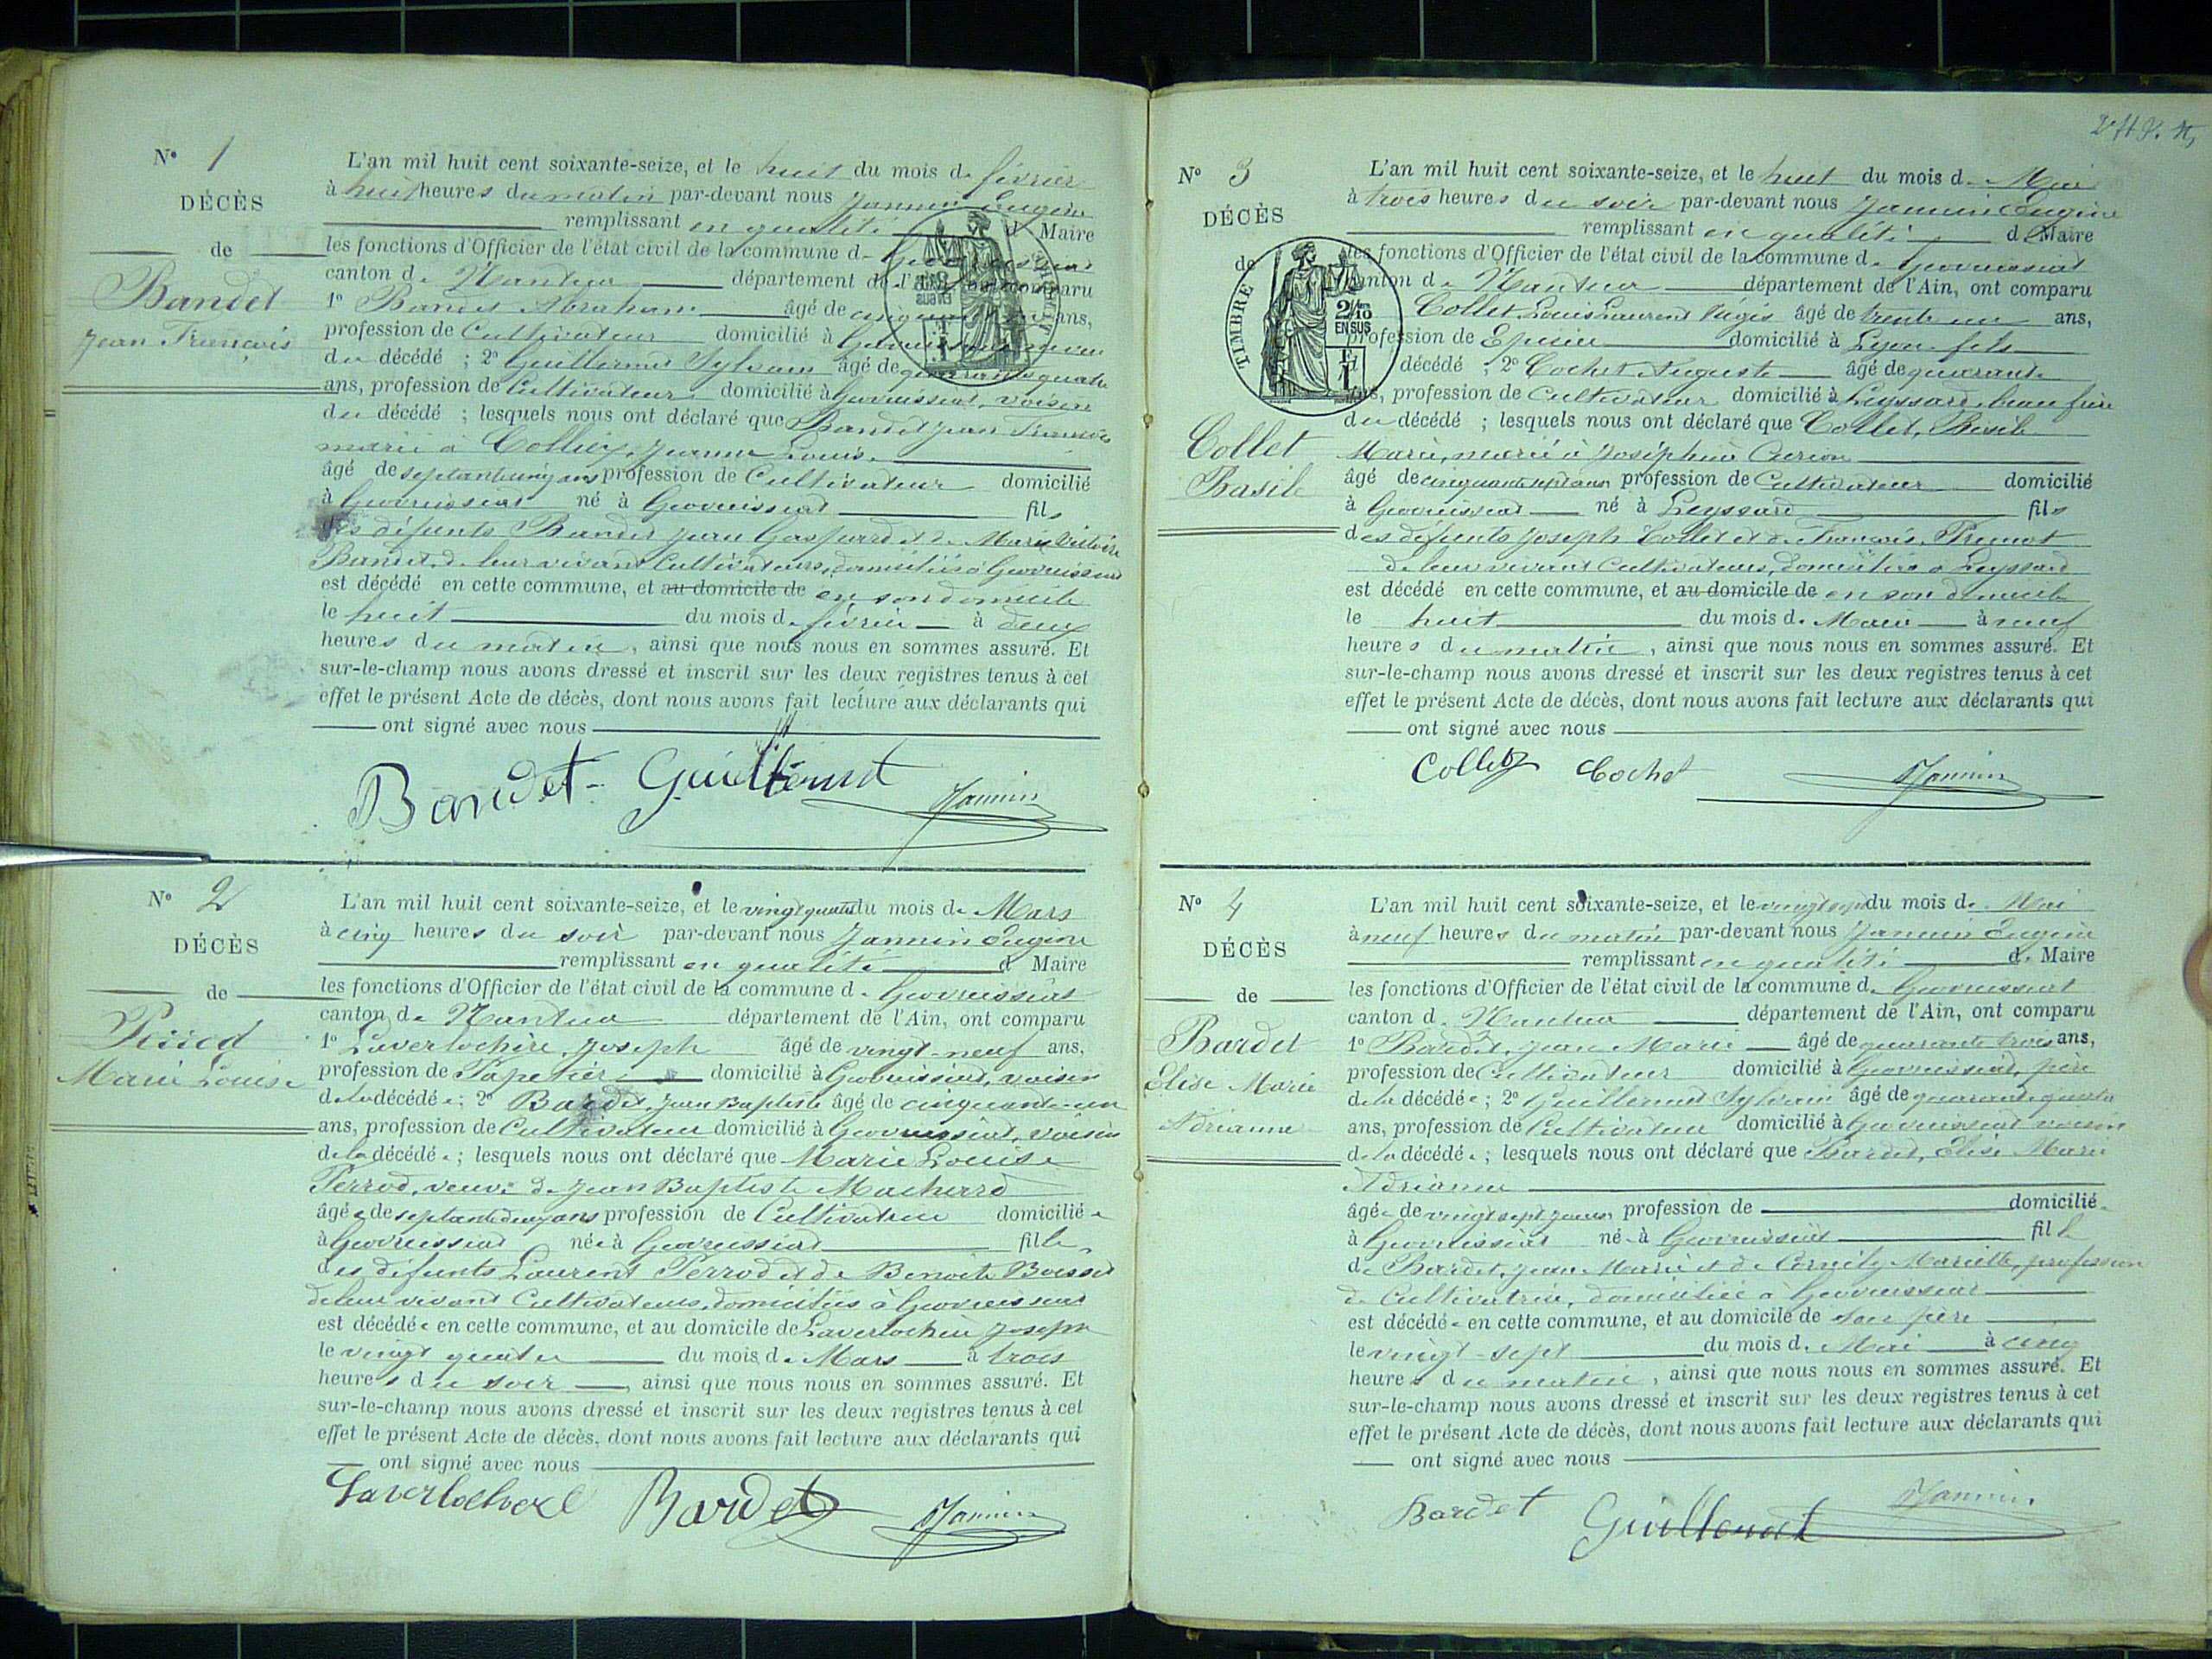 N° 1
DÉCÈS
de
Bandet
Jean François
L'an mil huit cent soixante-seize, et le huit du mois de février
à huit heures du matin par-devant nous Jannin Eugène
remplissant en qualité de Maire
les fonctions d'Officier de l'état civil de la commune de
canton de Nantua département de l'Ain, ont comparu
1° Bandet Abraham âgé de ans,
profession de Cultivateur domicilié à
du décédé ; 2° Guillermet Sylvain âgé de quarante quatre
ans, profession de Cultivateur domicilié à Géovreissiat, voisin
du décédé ; lesquels nous ont déclaré que Bandet Jean François
marié à Jeanne Louise
âgé de septante cinq ans profession de Cultivateur domicilié
à Géovreissiat né à Géovreissiat fils
des défunts Bandet Jean Gaspard et de Marie Victoire
Bandet, de leur vivant Cultivateurs, domiciliés à Géovreissiat
est décédé en cette commune, et au domicile de en son domicile
le huit du mois de février à deux
heures du matin, ainsi que nous nous en sommes assuré. Et
sur-le-champ nous avons dressé et inscrit sur les deux registres tenus à cet
effet le présent Acte de décès, dont nous avons fait lecture aux déclarants qui
ont signé avec nous
Bandet Guillermet Jannin
N° 2
DÉCÈS
de
Perrod
Marie Louise
L'an mil huit cent soixante-seize, et le vingt quatre du mois de Mars
à cinq heures du soir par-devant nous Jannin Eugène
remplissant en qualité de Maire
les fonctions d'Officier de l'état civil de la commune de Géovreissiat
canton de Nantua département de l'Ain, ont comparu
1° Laverlochère Joseph âgé de vingt-neuf ans,
profession de Papetier domicilié à Géovreissiat, voisin
de la décédée ; 2° Bardet, Jean Baptiste âgé de cinquante-un
ans, profession de Cultivateur domicilié à Géovreissiat, voisin
de la décédée ; lesquels nous ont déclaré que Marie Louise
Perrod, veuve de Jean Baptiste Machard
âgée de septante deux ans profession de Cultivatrice domiciliée
à Géovreissiat née à Géovreissiat fille
des défunts Laurent Perrod et de Benoite Boisset
de leur vivant Cultivateurs, domiciliés à Géovreissiat
est décédée en cette commune, et au domicile de Laverlochère Joseph
le vingt quatre du mois de Mars à trois
heures du soir, ainsi que nous nous en sommes assuré. Et
sur-le-champ nous avons dressé et inscrit sur les deux registres tenus à cet
effet le présent Acte de décès, dont nous avons fait lecture aux déclarants qui
ont signé avec nous
Laverlochere Bardet Jannin
N° 3
DÉCÈS
de
TIMBRE
2/10
EN SUS
Collet
Basile
L'an mil huit cent soixante-seize, et le huit du mois de Mai
à trois heures du soir par-devant nous Jannin Eugène
remplissant en qualité de Maire
les fonctions d'Officier de l'état civil de la commune de Géovreissiat
canton de Nantua département de l'Ain, ont comparu
Collet Louis Laurent Régis âgé de trente un ans,
profession de Epicier domicilié à Lyon fils
décédé ; 2° Cochet Auguste âgé de quarante
ans, profession de Cultivateur domicilié à Leyssard, beau frère
du décédé ; lesquels nous ont déclaré que Collet, Basile
Marie, marié à Joséphine
âgé de cinquante sept ans profession de Cultivateur domicilié
à Géovreissiat né à Leyssard fils
des défunts Joseph Collet et de Françoise
de leur vivant Cultivateurs, domiciliés à Leyssard
est décédé en cette commune, et au domicile de en son domicile
le huit du mois de Mai à neuf
heures du matin, ainsi que nous nous en sommes assuré. Et
sur-le-champ nous avons dressé et inscrit sur les deux registres tenus à cet
effet le présent Acte de décès, dont nous avons fait lecture aux déclarants qui
ont signé avec nous
Collet Cochet Jannin
N° 4
DÉCÈS
de
Bardet
Elise Marie
Adrianne
L'an mil huit cent soixante-seize, et le vingt sept du mois de Mai
à neuf heures du matin par-devant nous Jannin Eugène
remplissant en qualité de Maire
les fonctions d'Officier de l'état civil de la commune de Géovreissiat
canton de Nantua département de l'Ain, ont comparu
1° Bardet, Jean Marie âgé de quarante trois ans,
profession de Cultivateur domicilié à Géovreissiat, père
de la décédée ; 2° Guillermet Sylvain âgé de quarante quatre
ans, profession de Cultivateur domicilié à Géovreissiat voisin
de la décédée ; lesquels nous ont déclaré que Bardet, Elise Marie
Adrianne
âgée de vingt sept jours profession de domicilié
à Géovreissiat né à Géovreissiat fille
de Bardet, Jean Marie et de Mariette, profession
de Cultivatrice, domiciliée à Géovreissiat
est décédée en cette commune, et au domicile de son père
le vingt-sept du mois de Mai à cinq
heures du matin, ainsi que nous nous en sommes assuré. Et
sur-le-champ nous avons dressé et inscrit sur les deux registres tenus à cet
effet le présent Acte de décès, dont nous avons fait lecture aux déclarants qui
ont signé avec nous
Bardet Guillermet Jannin